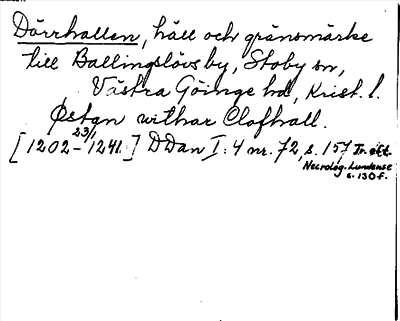 Dörrhallen, häll och gränsmärke
till Ballingslövs by, Stoby sn,
Västra Göinge hd, Krist. l.
Østan withar Clofhall.
23/1
[1202-1241.] DDan I:4 nr. 72, s. 157 Tr. eft.
Necrolog. Lundense
s. 130 f.